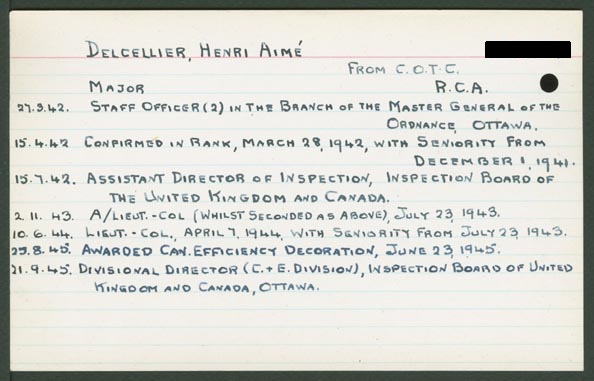 DELCELLIER, HENRI AIMÉ
FROM C.O.T.C.
MAJOR R.C.A.
27.3.42. STAFF OFFICER (2) IN THE BRANCH OF THE MASTER GENERAL OF THE
ORDNANCE, OTTAWA.
15.4.42 CONFIRMED IN RANK, MARCH 28, 1942, WITH SENIORITY FROM
DECEMBER 1, 1941.
15.7.42. ASSISTANT DIRECTOR OF INSPECTION, INSPECTION BOARD OF
THE UNITED KINGDOM AND CANADA.
2.11.43. A/LIEUT.-COL (WHILST SECONDED AS ABOVE), JULY 23, 1943.
10.6.44. LIEUT.-COL., APRIL 7, 1944, WITH SENIORITY FROM JULY 23, 1943.
29.8.45. AWARDED CAN. EFFICIENCY DECORATION, JUNE 23, 1945.
21.9.45. DIVISIONAL DIRECTOR (C.+E. DIVISION), INSPECTION BOARD OF UNITED
KINGDOM AND CANADA, OTTAWA.